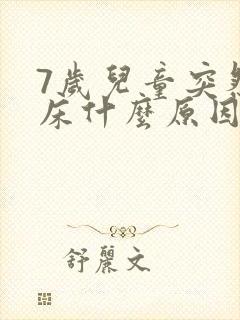 7歲兒童突然
床什麼原因
舒麗文